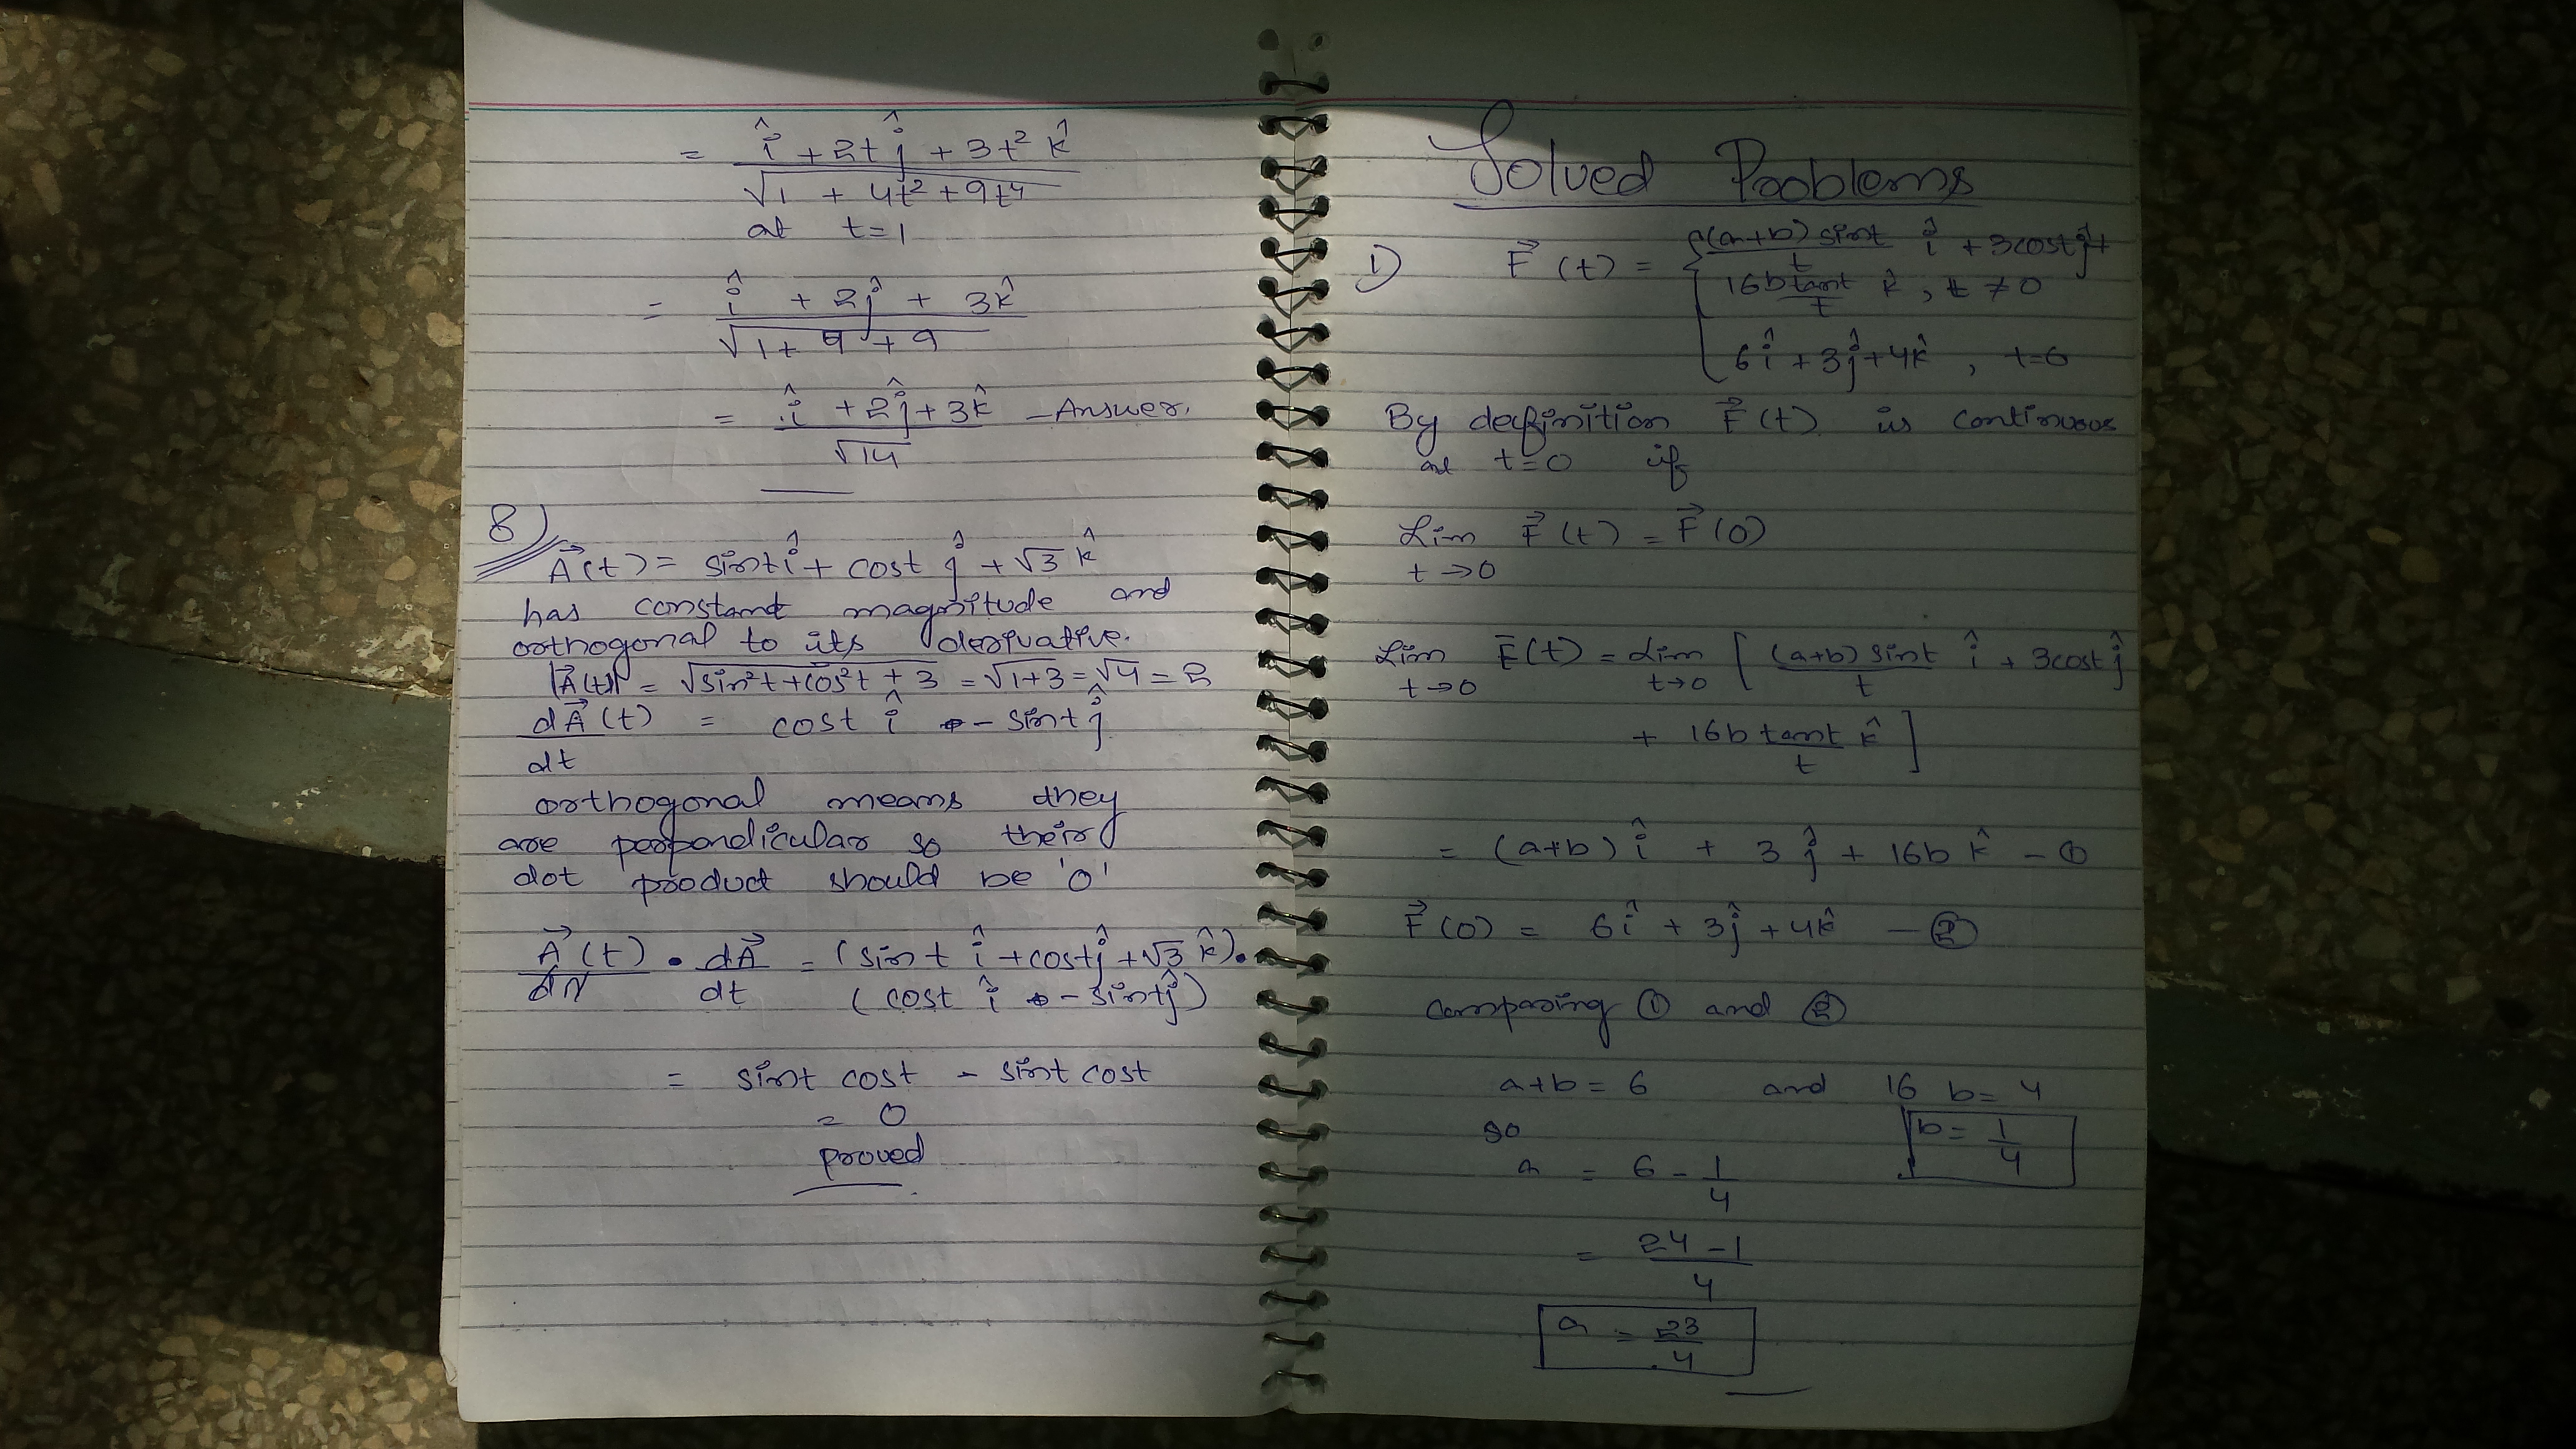 = î + 2t ĵ + 3t² k̂
√1 + 4t² + 9t⁴
at t=1
= î + 2ĵ + 3k̂
√1 + 4 + 9
= î + 2ĵ + 3k̂ - Answer.
√14
8)
A⃗(t) = sint î + cost ĵ + √3 k̂
has constant magnitude and
orthogonal to its derivative.
|A⃗(t)| = √sin²t + cos²t + 3 = √1+3 = √4 = 2
dA⃗(t) = cost î - sint ĵ
dt
orthogonal means they
are perpendicular so their
dot product should be '0'
A⃗(t) • dA⃗ = (sint î + cost ĵ + √3 k̂).
dt (cost î - sint ĵ)
= sint cost - sint cost
= 0
proved
Solved Problems
1) F⃗(t) = { (a+b) sint î + 3cost ĵ +
t
16b tant k̂, t ≠ 0
t
6î + 3ĵ + 4k̂, t=0
By definition F⃗(t) is continuous
at t=0 if
Lim F⃗(t) = F⃗(0)
t→0
Lim F⃗(t) = Lim [ (a+b) sint î + 3cost ĵ
t→0 t→0 t
+ 16b tant k̂ ]
t
= (a+b) î + 3 ĵ + 16b k̂ - ①
F⃗(0) = 6î + 3ĵ + 4k̂ - ②
comparing ① and ②
a+b = 6 and 16 b = 4
so b = 1
4
a = 6 - 1
4
= 24 - 1
4
a = 23
4